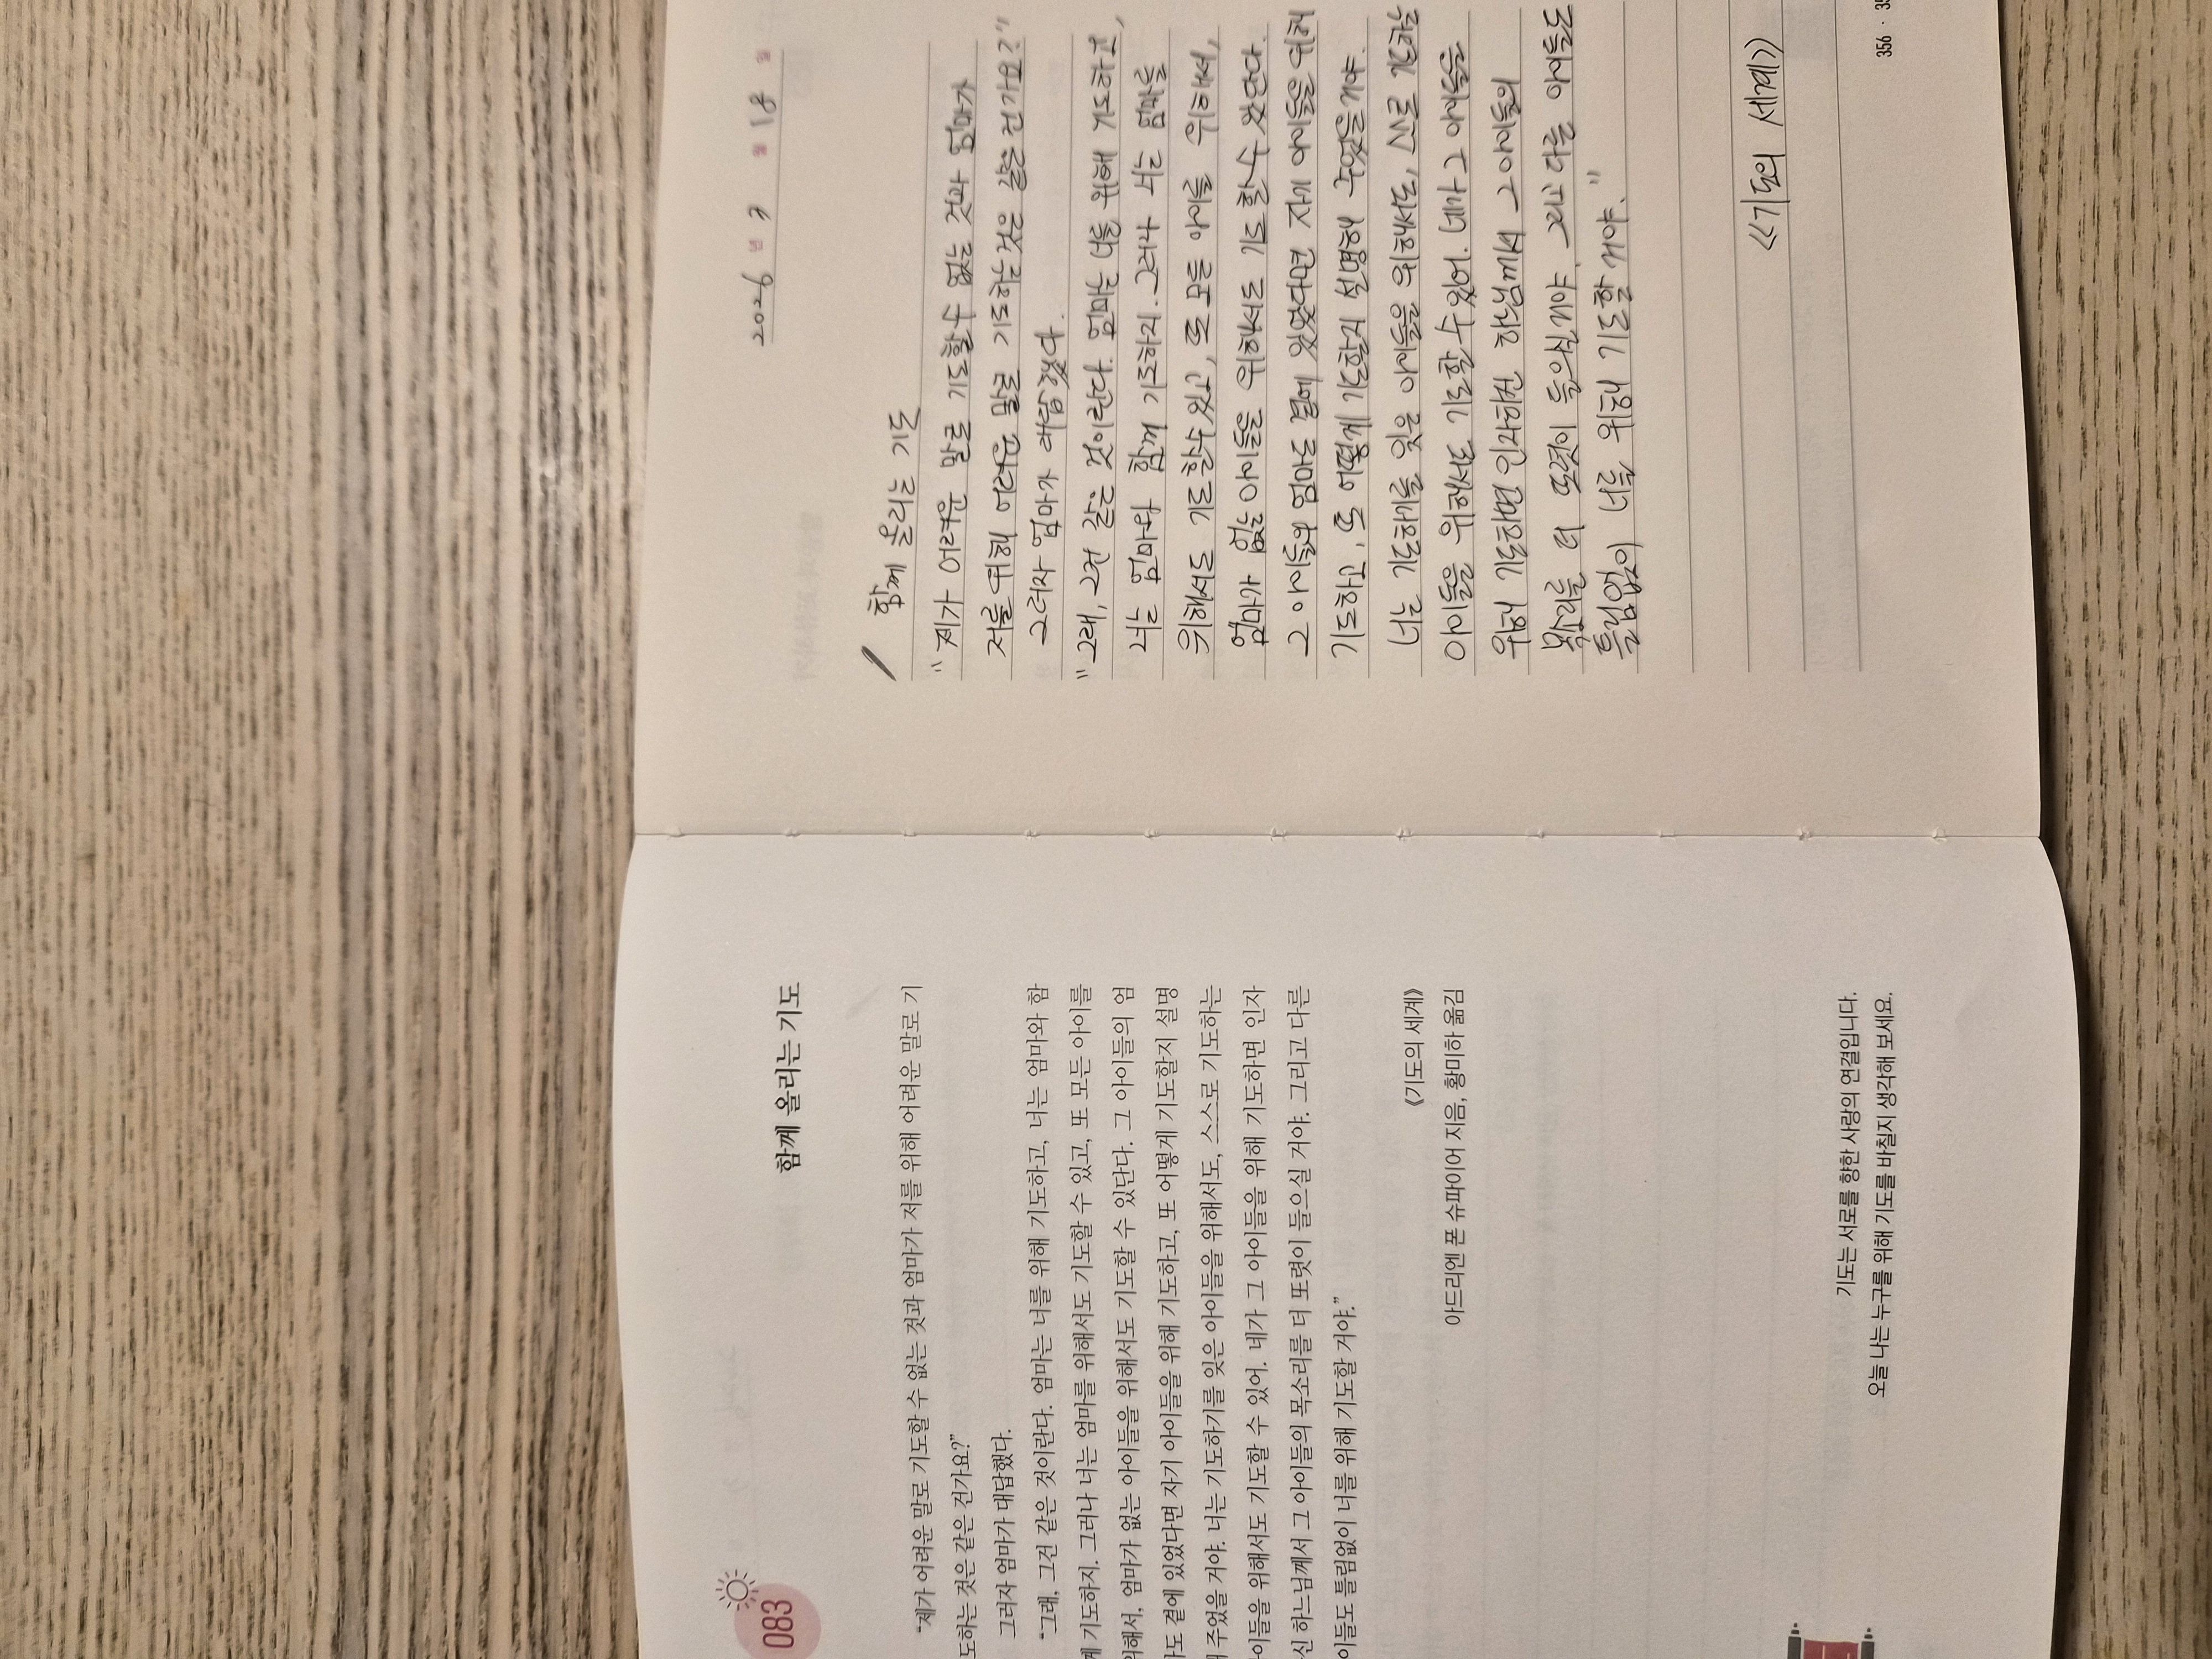 083
함께 올리는 기도
“제가 어려운 말로 기도할 수 없는 것과 엄마가 저를 위해 어려운 말로 기
도하는 것은 같은 건가요?”
그러자 엄마가 대답했다.
“그래, 그건 같은 것이란다. 엄마는 너를 위해 기도하고, 너는 엄마와 함
께 기도하지. 그러나 너는 엄마를 위해서도 기도할 수 있고, 또 모든 아이를
위해서, 엄마가 없는 아이들을 위해서도 기도할 수 있단다. 그 아이들의 엄
마도 곁에 있었다면 자기 아이들을 위해 기도하고, 또 어떻게 기도할지 설명
해 주었을 거야. 너는 기도하기를 잊은 아이들을 위해서도, 스스로 기도하는
아이들을 위해서도 기도할 수 있어. 네가 그 아이들을 위해 기도하면 인자
하신 하느님께서 그 아이들의 목소리를 더 또렷이 들으실 거야. 그리고 다른
아이들도 틀림없이 너를 위해 기도할 거야.”
《기도의 세계》
아드리엔 폰 슈파이어 지음, 황미하 옮김
기도는 서로를 향한 사랑의 연결입니다.
오늘 나는 누구를 위해 기도를 바칠지 생각해 보세요.
2026 년 3 월 18 일
함께 올리는 기도
"제가 어려운 말로 기도할 수 없는 것과 엄마가
저를 위해 어려운 말로 기도하는 것은 같은 건가요?"
그러자 엄마가 대답했다.
"그래, 그건 같은 것이란다. 엄마는 너를 위해 기도하고,
너는 엄마와 함께 기도하지. 그러나 너는 엄마를
위해서도 기도할 수 있고, 또 모든 아이를 위해서,
엄마가 없는 아이들을 위해서도 기도 할 수 있단다.
그 아이들의 엄마도 곁에 있었다면 자기 아이들을 위해
기도하고, 또 어떻게 기도할지 설명해 주었을 거야.
너는 기도하기를 잊은 아이들을 위해서도, 스스로 기도하는
아이들을 위해서도 기도할 수 있어. 네가 그 아이들을
위해 기도하면 인자하신 하느님께서 그 아이들의
목소리를 더 또렷이 들으실 거야. 그리고 다른 아이들도
틀림없이 너를 위해 기도할 거야."
《기도의 세계》
356 · 35